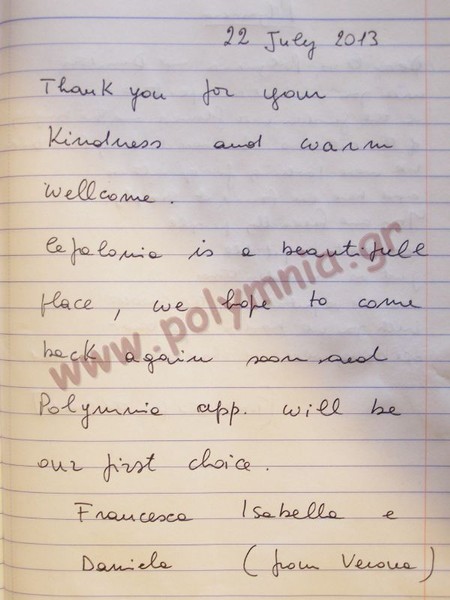 22 July 2013
Thank you for your
Kindness and warm
wellcome.
Cefalonia is a beautifull
place, we hope to come
back again soon and
Polymnia app. will be
our first choice.
Francesca Isabella e
Daniela (from Verona)
www.polymnia.gr